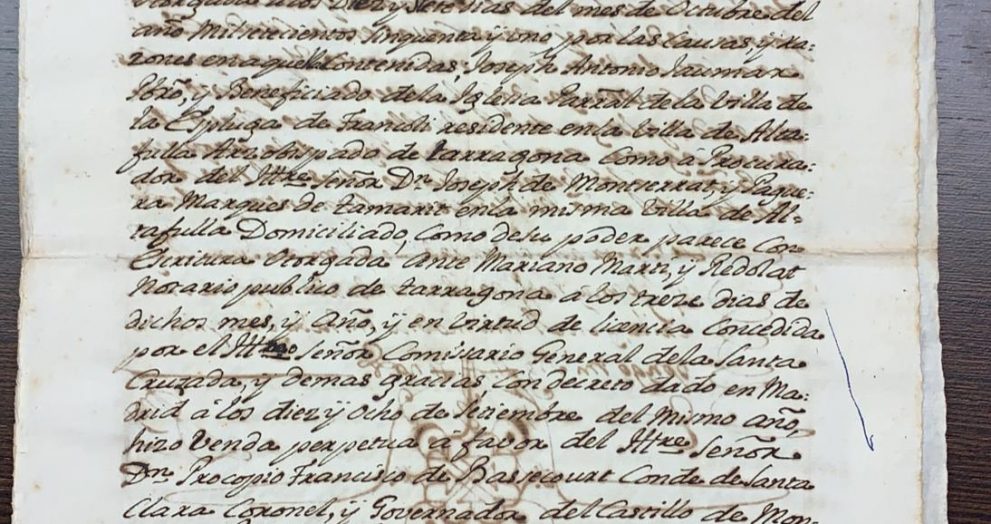 otorgada a los Diez y Siete dias del mes de Octubre del
año Mil setecientos sinquenta y ono por las Causas, y ra:
zones en aquella Contenidas; Joseph Antonio Jaumar
Pbro, y Beneficiado de la Iglesia Parral de la Villa de
la Espluga de Francoli residente en la Villa de Alta:
fulla Arzobispado de tarragona Como â Procura:
dor del Iltre Señor Dn Joseph de Montserrat, y Pague:
ra Marques de tamarit en la misma Villa de Al:
tafulla Domiciliado, Como de su poder parece Con
Escritura otorgada ante Mariano Marti, y Redolat
Notario publico de tarragona â los treze dias de
dichos mes, y año, y en virtud de licencia Concedida
por el señor Comissario General de la Santa
Cruzada, y demas gracias con decreto dado en Ma:
drid â los diez y ocho de Setiembre del Mismo año,
hizo Venda perpetua â favor del Iltre Señor
Dn Procopio Francisco de Bassecourt Conde de Santa
Clara Coronel, y Governador del Castillo de Mon: